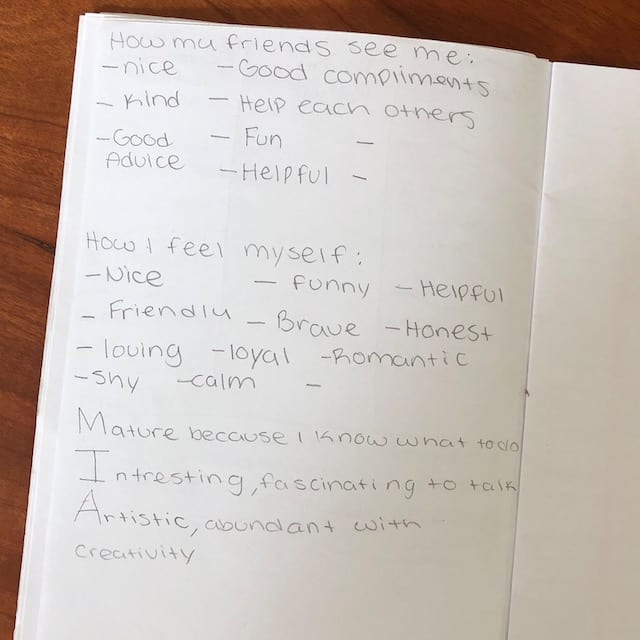 How mu friends see me:
-nice -Good compliments
- Kind - Help each others
-Good - Fun -
Advice -Helpful -
How I feel myself:
-Nice - funny -Helpful
- Friendlu - Brave -Honest
- loving -loyal -Romantic
-shy -calm -
Mature because I know what todo
Intresting, fascinating to talk
Artistic, abundant with
creativity